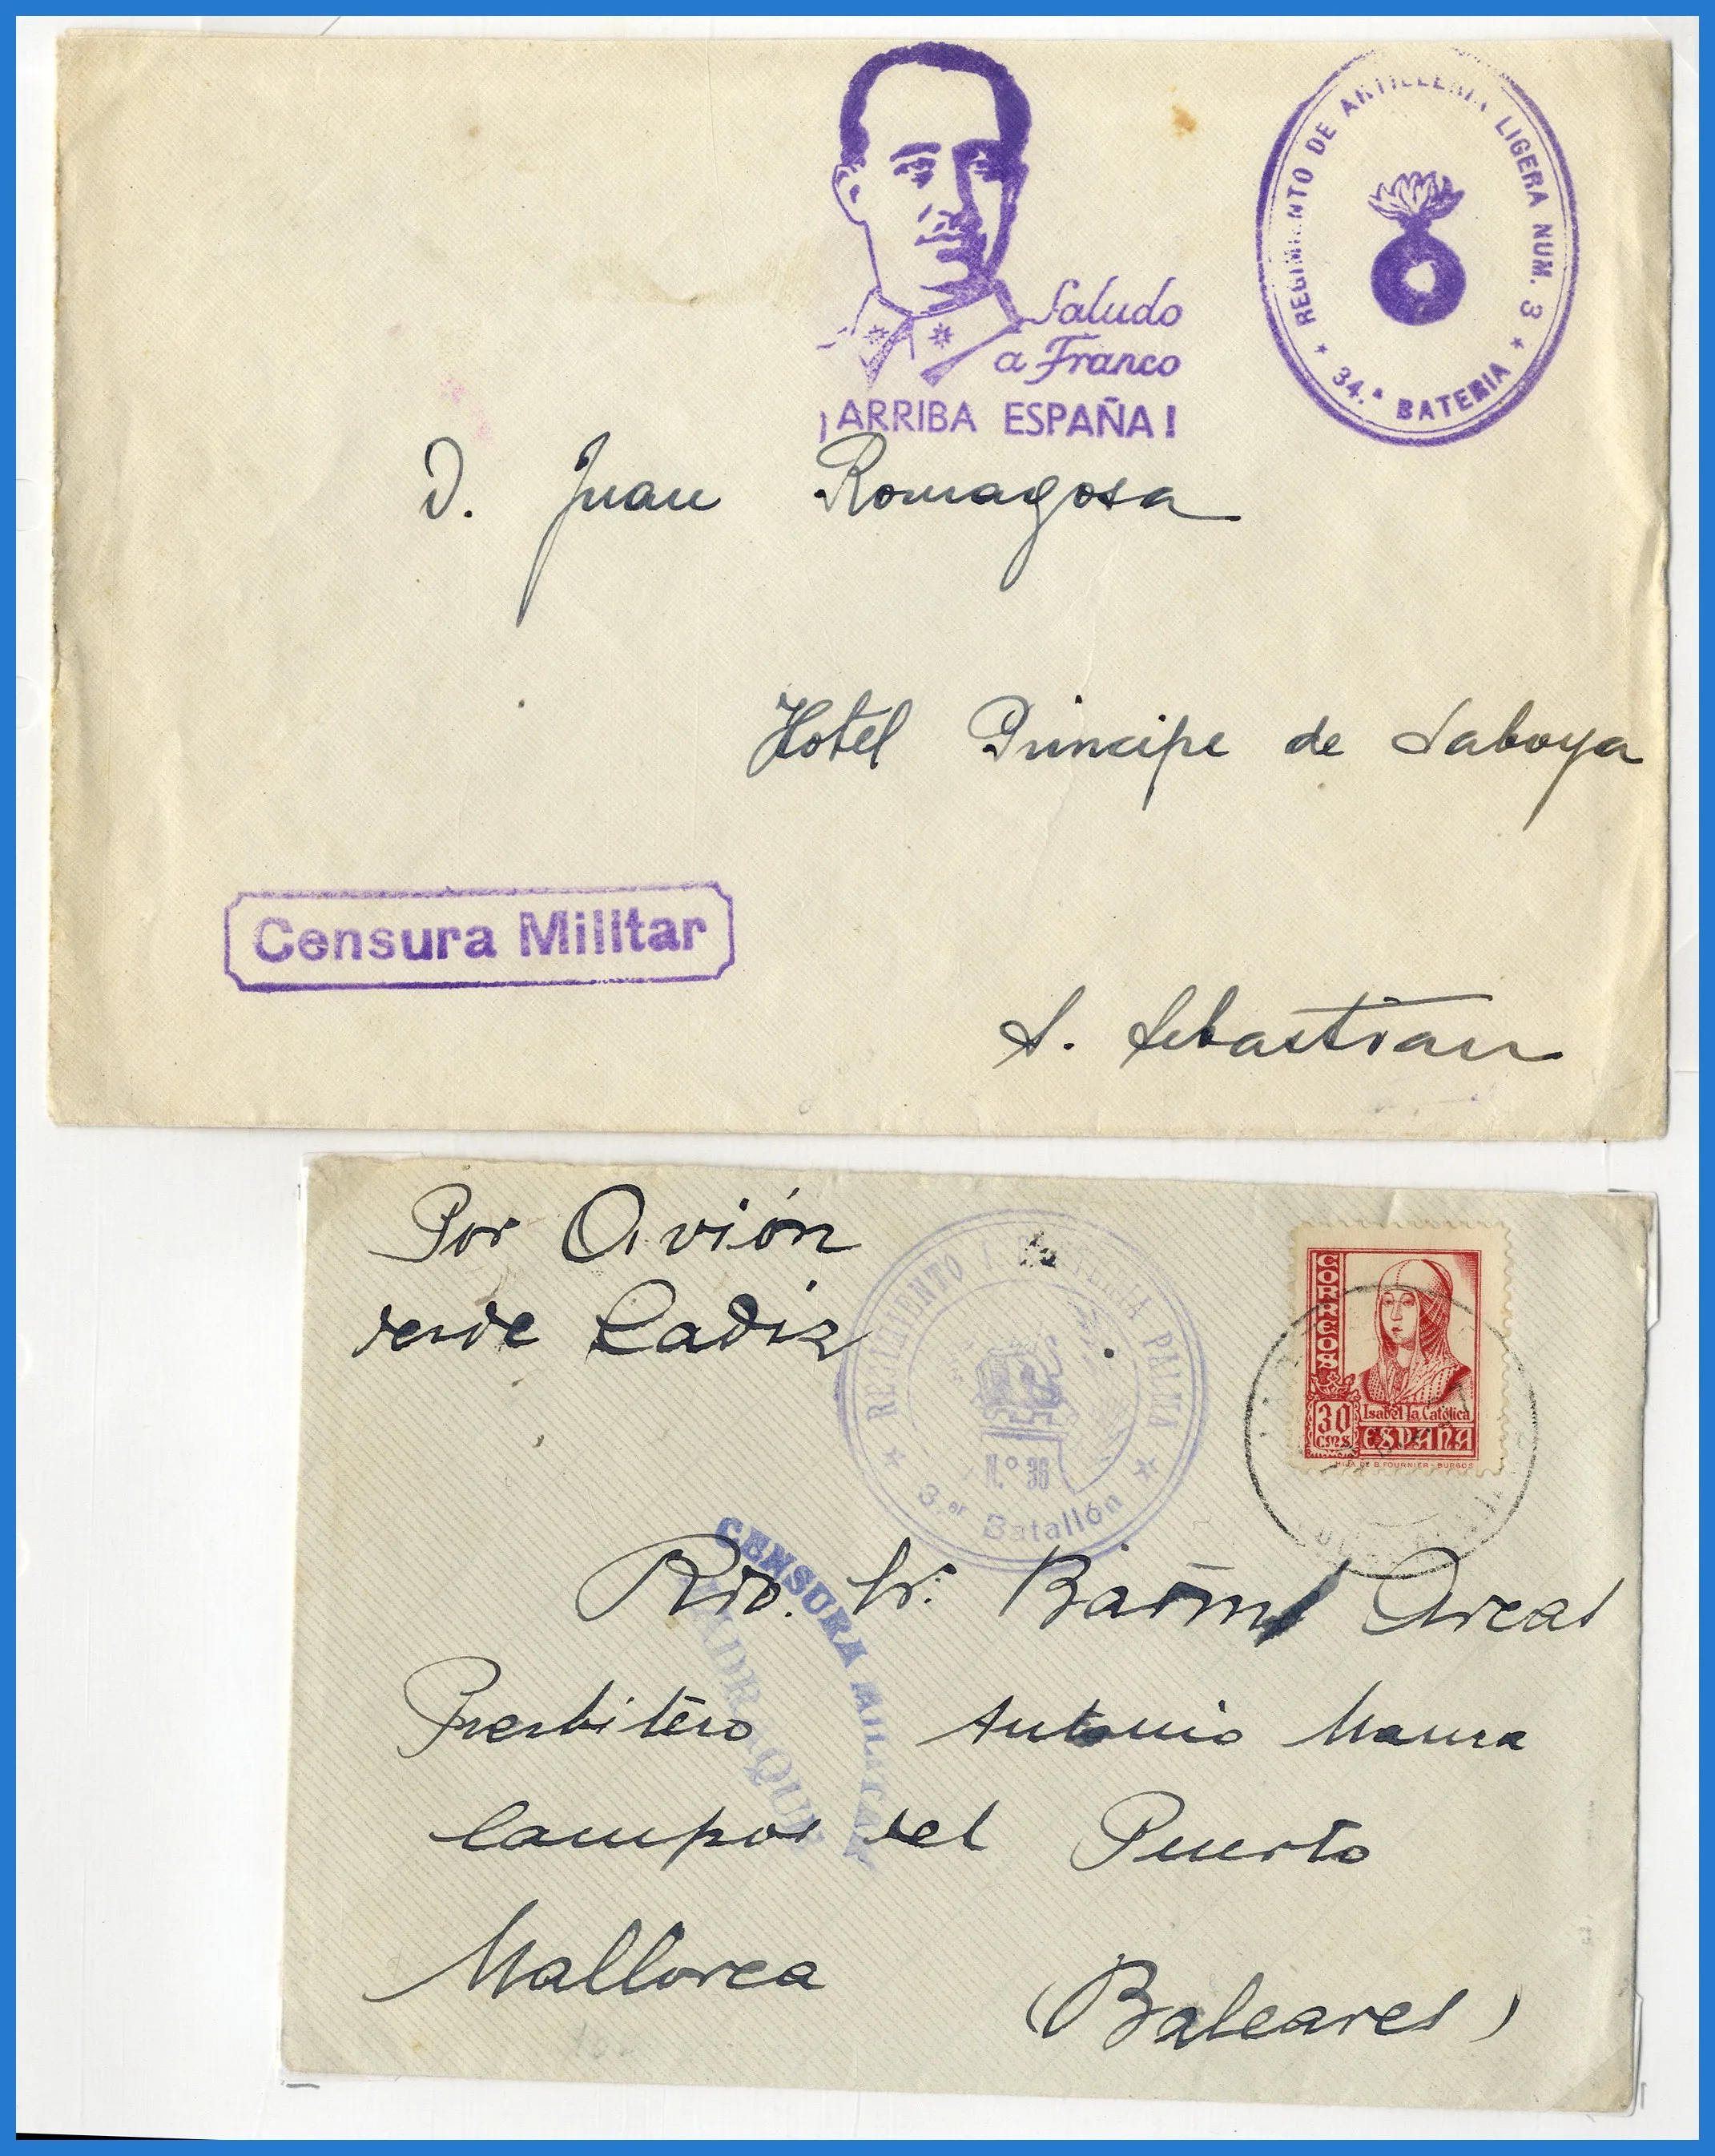 Saludo
a Franco
¡ARRIBA ESPAÑA!
REGIMIENTO DE ARTILLERIA LIGERA NUM. 3
34.ª BATERIA
D. Juan Romagosa
Hotel Principe de Saboya
Censura Militar
S. Sebastian
Por Avión
desde Cadiz
REGIMIENTO INFANTERIA PALMA
N.º 36
3.er Batallón
CORREOS
30
CMS
Isabel la Católica
ESPAÑA
HIJA DE B. FOURNIER - BURGOS
CENSURA MILITAR
JADRAQUE
Rdo. Sr. Arcas
Presbitero Antonio Maura
Campos del Puerto
Mallorca
(Baleares)